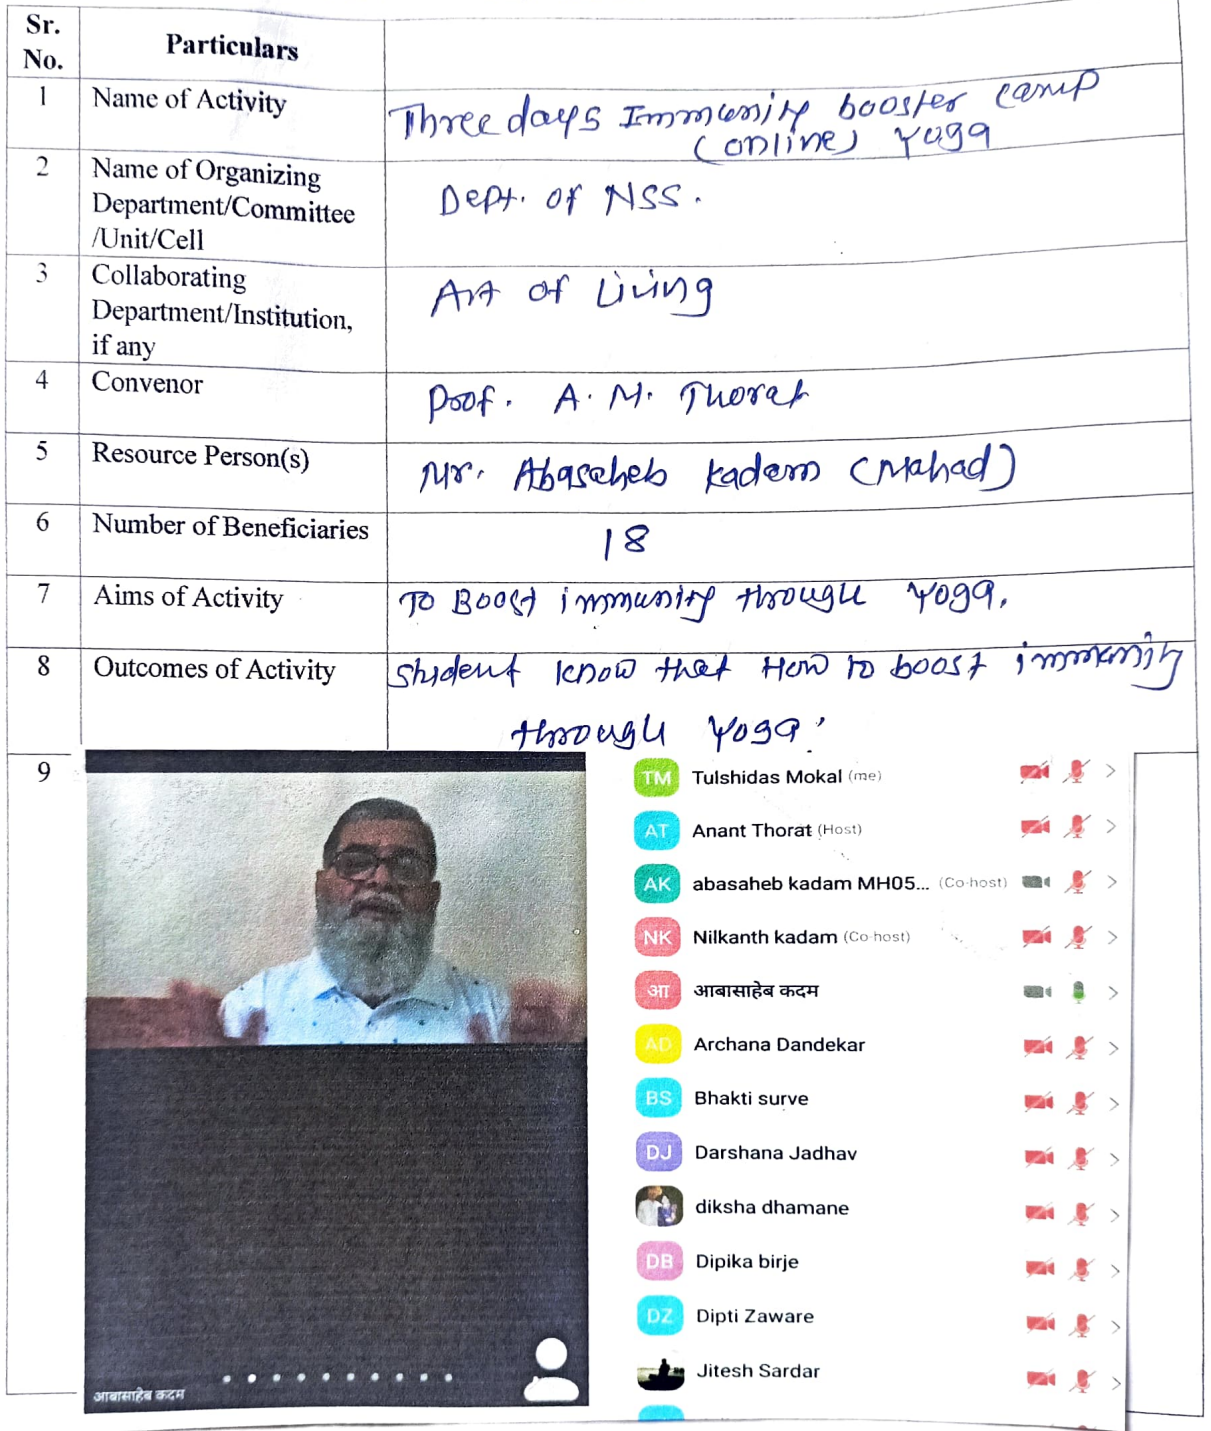 Sr. No.
Particulars
1
Name of Activity
Three days Immunity booster camp
(online) Yoga
2
Name of Organizing
Department/Committee
/Unit/Cell
Dept. of NSS.
3
Collaborating
Department/Institution,
if any
Art of Living
4
Convenor
Prof. A. M. Thorat
5
Resource Person(s)
Mr. Abasaheb Kadam (Mahad)
6
Number of Beneficiaries
18
7
Aims of Activity
To Boost immunity through Yoga.
8
Outcomes of Activity
Student know that How to boost immunity
through Yoga.
9
TM Tulshidas Mokal (me)
AT Anant Thorat (Host)
AK abasaheb kadam MH05... (Co-host)
NK Nilkanth kadam (Co-host)
आ आबासाहेब कदम
AD Archana Dandekar
BS Bhakti surve
DJ Darshana Jadhav
diksha dhamane
DB Dipika birje
DZ Dipti Zaware
Jitesh Sardar
आबासाहेब कदम